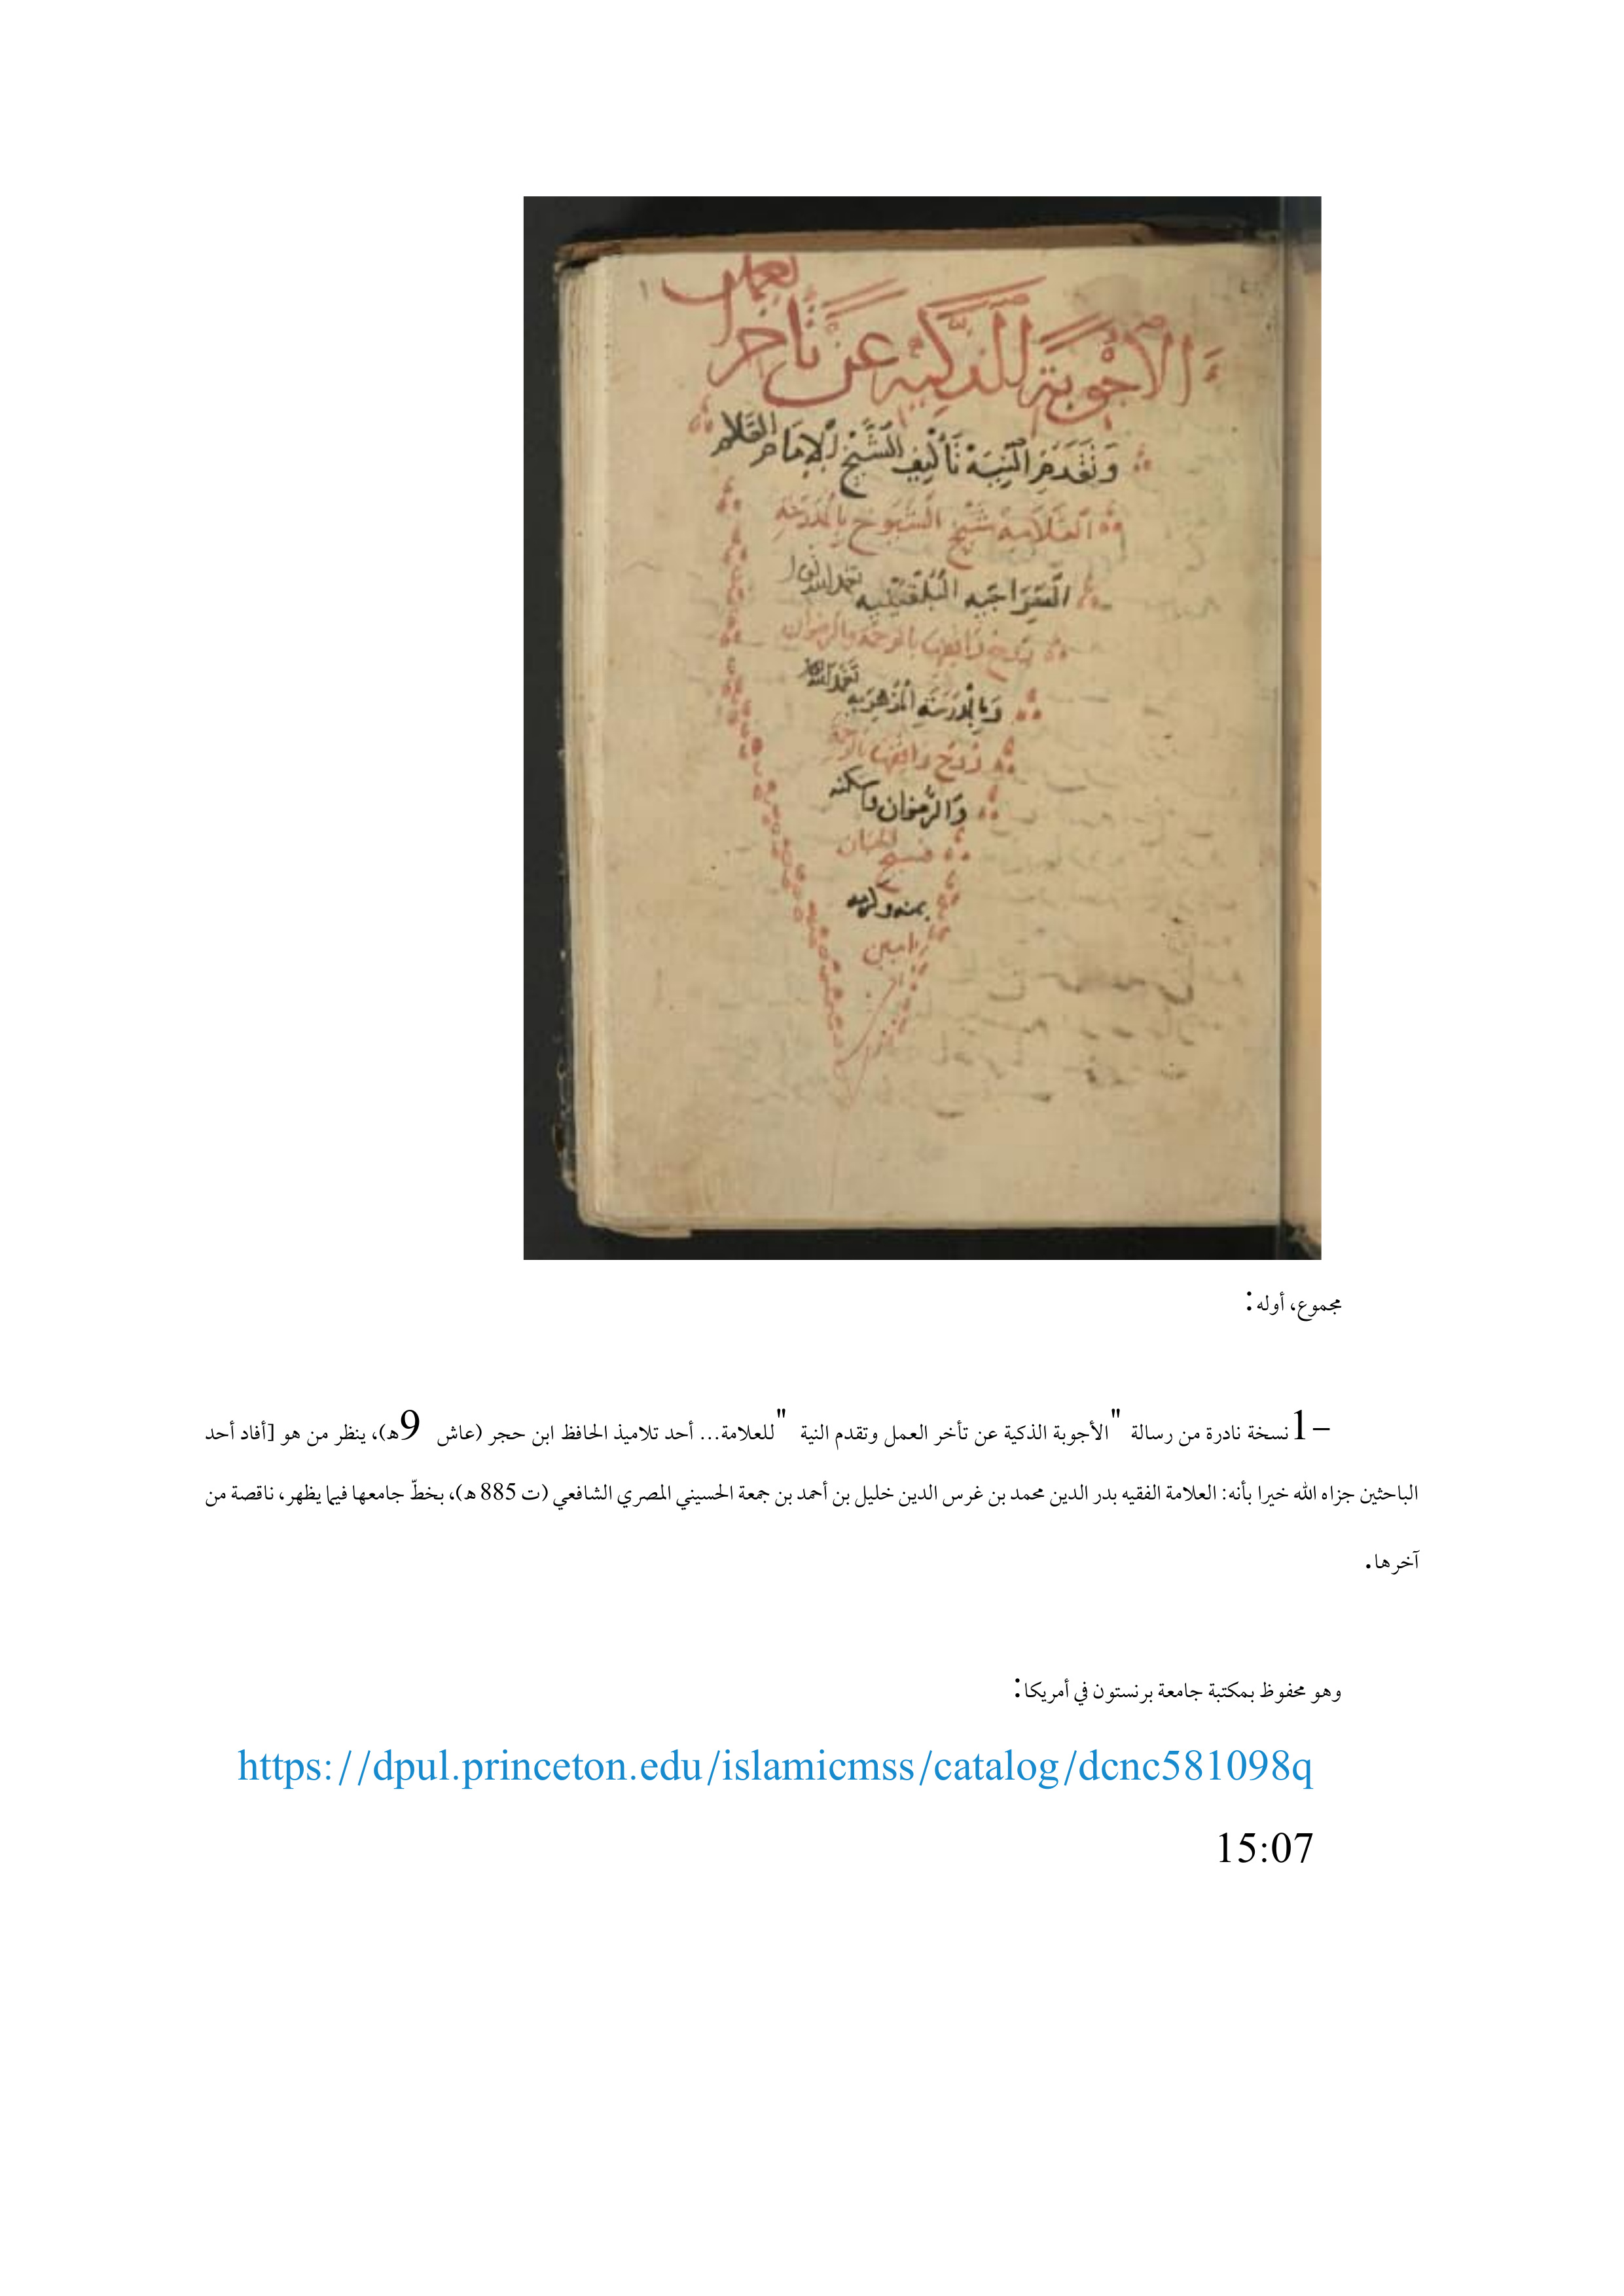 العمل
الأجوبة الذكية عن تأخر
وتقدم النية تأليف الشيخ الإمام العلام
العلامة شيخ الشيوخ بالمدرسة
السراجية البلقينية تغمد الله تعالى
روح واقفها بالرحمة والرضوان
وبالمدرسة المزهرية تغمد الله
روح واقفها بالرحمة
والرضوان وأسكنه
فسيح الجنان
بمنه وكرمه
امين
مجموع، أوله:
1– نسخة نادرة من رسالة "الأجوبة الذكية عن تأخر العمل وتقدم النية" للعلامة... أحد تلاميذ الحافظ ابن حجر (عاش 9هـ)، ينظر من هو [أفاد أحد
الباحثين جزاه الله خيرا بأنه: العلامة الفقيه بدر الدين محمد بن غرس الدين خليل بن أحمد بن جمعة الحسيني المصري الشافعي (ت 885 هـ)، بخطّ جامعها فيما يظهر، ناقصة من
آخرها.
وهو محفوظ بمكتبة جامعة برنستون في أمريكا:
https://dpul.princeton.edu/islamicmss/catalog/dcnc581098q
15:07